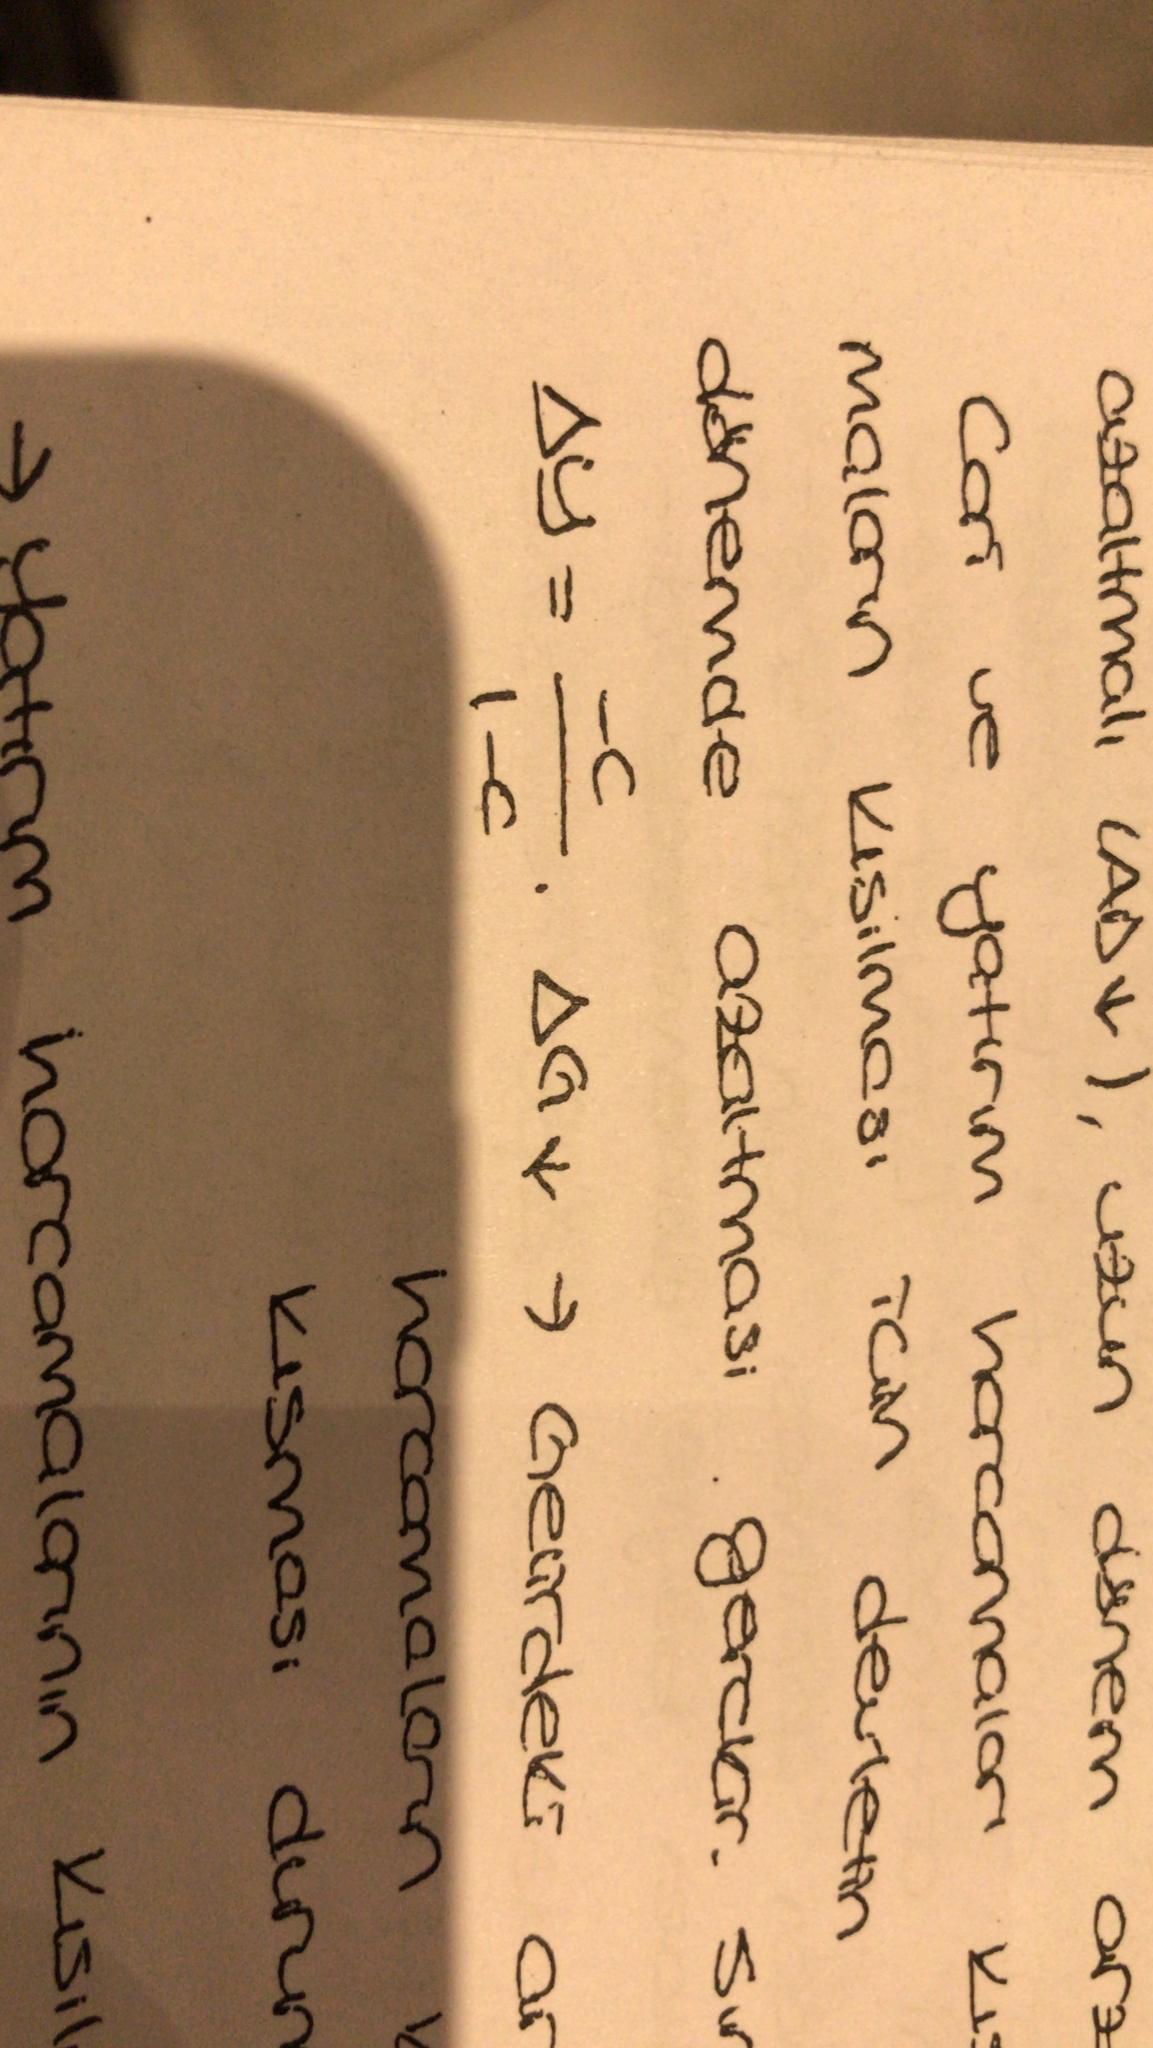 azaltmalı (AD↓), uzun dönem arz
Cari ve yatırım harcamalar kıs
maların kısılması için devletin
dönemde azaltması gerekir. sır
Δy = -c / 1-c . ΔG ↓ → Gelirdeki ar
harcamaların k
kısması durun
→ yatırım harcamalarının kısıl